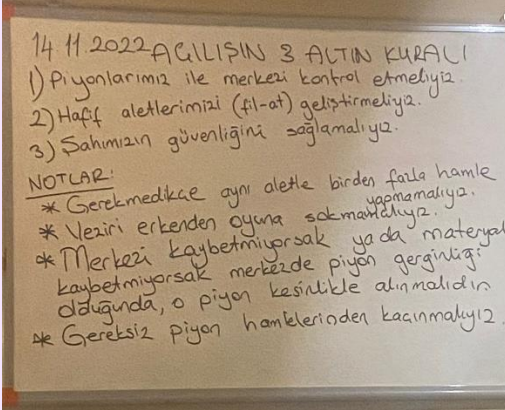 14.11.2022 AÇILIŞIN 3 ALTIN KURALI
1) Piyonlarımız ile merkezi kontrol etmeliyiz.
2) Hafif aletlerimizi (fil-at) geliştirmeliyiz.
3) Şahımızın güvenliğini sağlamalıyız.
NOTLAR:
* Gerekmedikçe aynı aletle birden fazla hamle
yapmamalıyız.
* Veziri erkenden oyuna sokmamalıyız.
* Merkezi kaybetmiyorsak ya da materyal
kaybetmiyorsak merkezde piyon gerginliği
olduğunda, o piyon kesinlikle alınmalıdır.
* Gereksiz piyon hamlelerinden kaçınmalıyız.